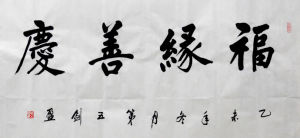 福緣善慶
乙未年冬月第五劍盈